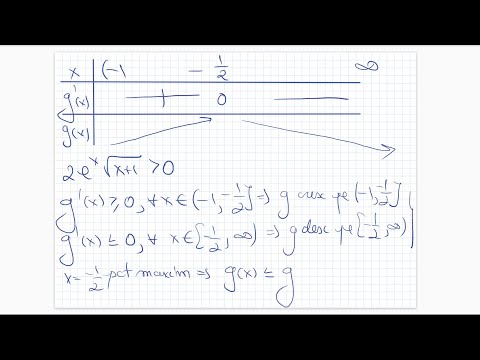 x | (-1 - 1/2 ∞
g'(x) | + 0 —
g(x) |
2e^x √(x+1) > 0
g'(x) ≥ 0, ∀ x ∈ (-1, -1/2] => g cresc pe (-1, -1/2]
g'(x) ≤ 0, ∀ x ∈ [-1/2, ∞) => g desc pe [-1/2, ∞)
x = -1/2 pct maxim => g(x) ≤ g